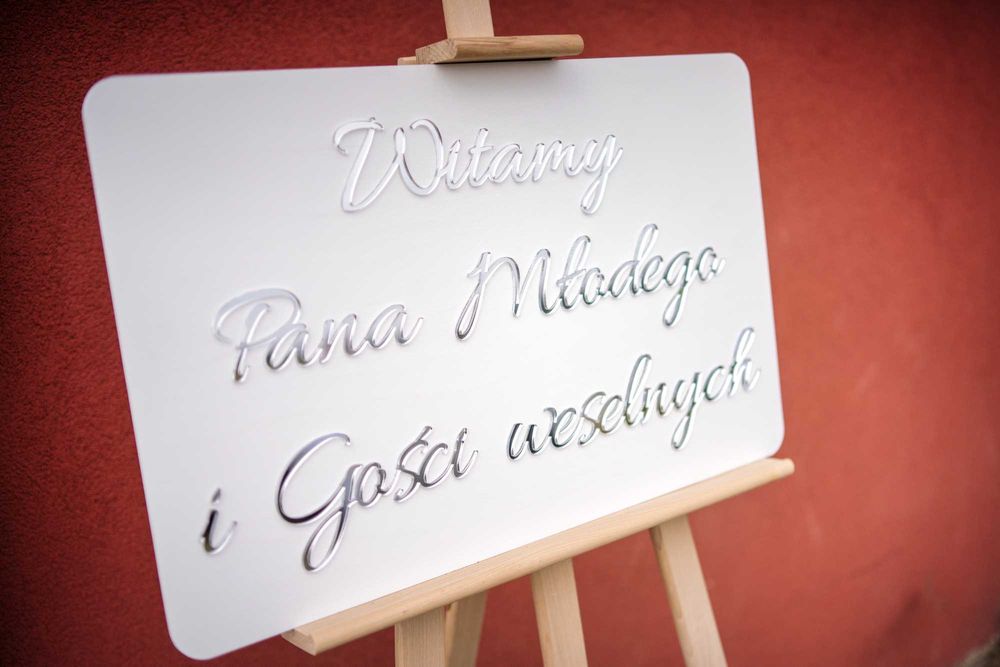 Witamy
Pana Młodego
i Gości weselnych